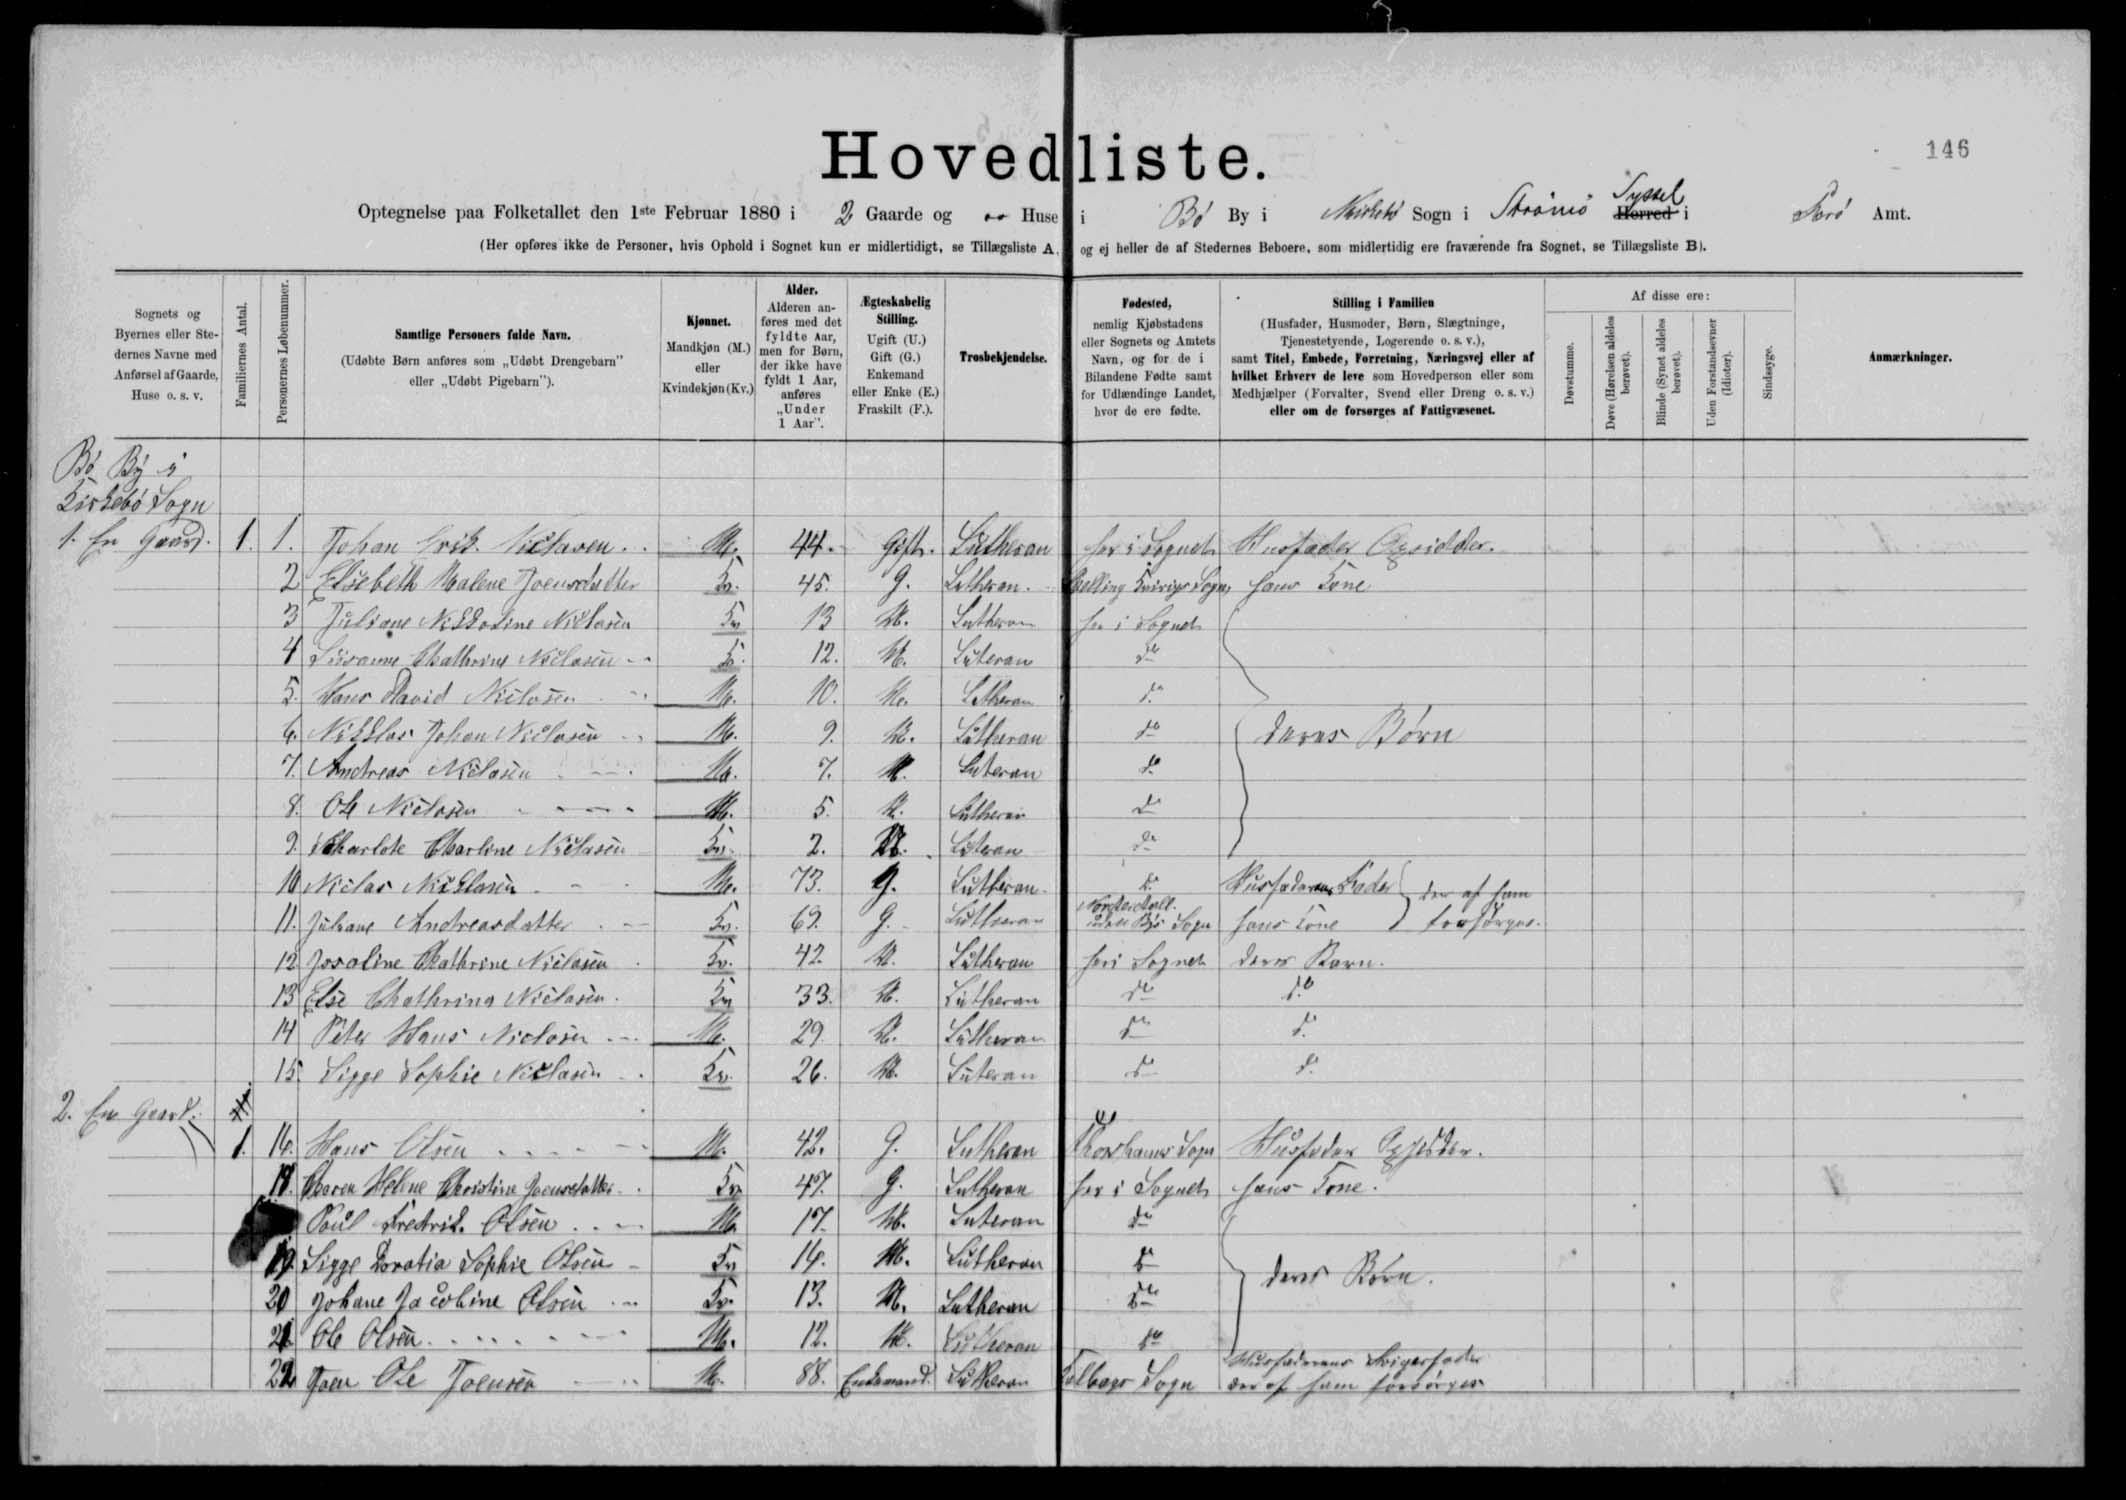 146
Hovedliste.
Optegnelse paa Folketallet den 1ste Februar 1880 i 2 Gaarde og oo Huse i Bö By i Sogn i Strömö Syssel Herred i Færö Amt.
(Her opføres ikke de Personer, hvis Ophold i Sognet kun er midlertidigt, se Tillægsliste A, og ej heller de af Stedernes Beboere, som midlertidig ere fraværende fra Sognet, se Tillægsliste B).
Sognets og Byernes eller Stedernes Navne med Anførsel af Gaarde, Huse o. s. v.
Familiernes Antal.
Personernes Løbenummer.
Samtlige Personers fulde Navn.
(Udøbte Børn anføres som „Udøbt Drengebarn" eller „Udøbt Pigebarn").
Kjønnet.
Mandkjøn (M.) eller Kvindekjøn (Kv.)
Alder.
Alderen anføres med det fyldte Aar, men for Børn, der ikke have fyldt 1 Aar, anføres „Under 1 Aar".
Ægteskabelig Stilling.
Ugift (U.) Gift (G.) Enkemand eller Enke (E.) Fraskilt (F.).
Trosbekjendelse.
Fødested,
nemlig Kjøbstadens eller Sognets og Amtets Navn, og for de i Bilandene Fødte samt for Udlændinge Landet, hvor de ere fødte.
Stilling i Familien
(Husfader, Husmoder, Børn, Slægtninge, Tjenestetyende, Logerende o. s. v.),
samt Titel, Embede, Forretning, Næringsvej eller af hvilket Erhverv de leve som Hovedperson eller som Medhjælper (Forvalter, Svend eller Dreng o. s. v.) eller om de forsørges af Fattigvæsenet.
Af disse ere:
Døvstumme.
Døve (Hørelsen aldeles berøvet).
Blinde (Synet aldeles berøvet).
Uden Forstandsevner (Idioter).
Sindssyge.
Anmærkninger.
Bö By i
Kirkebö Sogn
1. En Gaard. 1. 1. Johan Erik Niclasen M. 44. Gift. Lutheran her i Sognet Husfader Opsidder.
2 Elsebeth Malene Joensdatter Kv. 45. G. Lutheran. Sogn, hans Kone
3 Juliane Nikkoline Niclasen Kv 13 U. Lutheran her i Sognet
4 Susanne Chathrine Niclasen K. 12. U. Luteran do
5. Hans David Niclasen M. 10. U. Lutheran do
6. Nikklas Johan Niclasen M. 9. U. Lutheran do deres Börn
7. Andreas Niclasen M. 7. U. Luteran do
8. Ole Niclasen M. 5. U. Lutheran do
9. Charlote Charline Niclasen Kv. 2. U. Luteran do
10 Niclas Nicklasen M. 73. G. Lutheran do Husfaderens Fader der af ham
11. Juliane Andreasdatter Kv. 69. G. Lutheran Sogn hans Kone forsörges.
12 Josaline Chathrine Niclasen Kv. 42. U. Lutheran her i Sognet deres Barn.
13 Else Chathrina Niclasen. Kv 33. U. Lutheran do do
14 Peter Hans Niclasen M. 29. U. Lutheran do do
15. Sigge Sophie Niclasen Kv. 26. U. Luteran do do
2. En Gaard.
1. 16. Hans Olsen M. 42. G. Lutheran Thorshavns Sogn Husfader Opsidder.
Maren Helene Christine Joensdatter Kv 47. G. Lutheran her i Sognet hans Kone.
Poul Fredrik Olsen M. 17. U. Luteran do
19. Sigge Doratia Sophie Olsen Kv 14. U. Lutheran do deres Börn.
20 Johane Jacobine Olsen Kv. 13. U. Lutheran do
21 Ole Olsen M. 12. U. Lutheran do
22 Joen Ole Joensen M. 88. Enkemand. Lutheran Sogn Husfaderens Svigerfader
der af ham forsörges